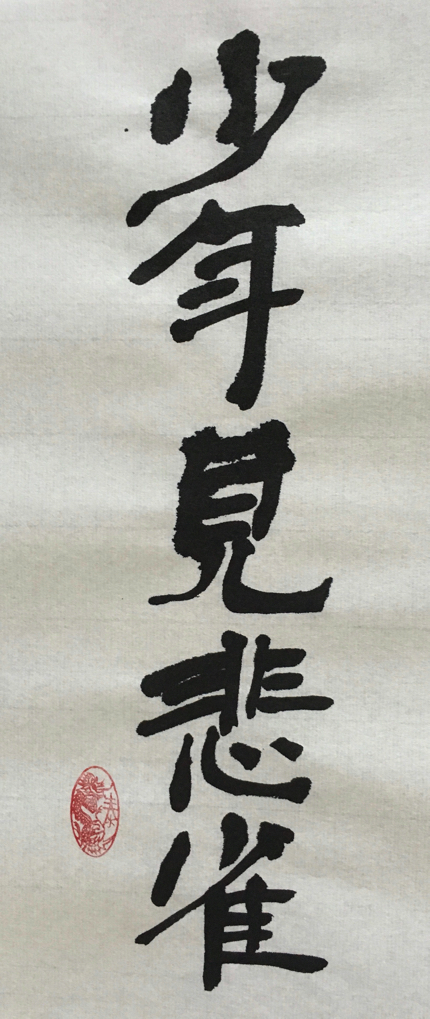 少年見悲雀